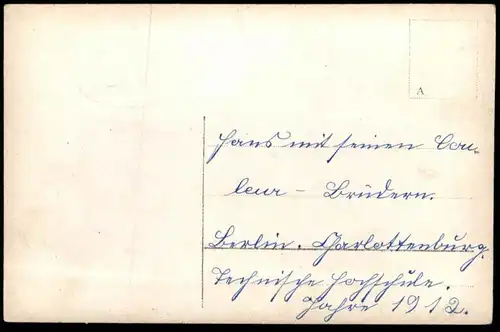 A
Hans mit seinen Cou-
leur - Brüdern.
Berlin. Charlottenburg.
Technische Hochschule.
Jahre 1912.